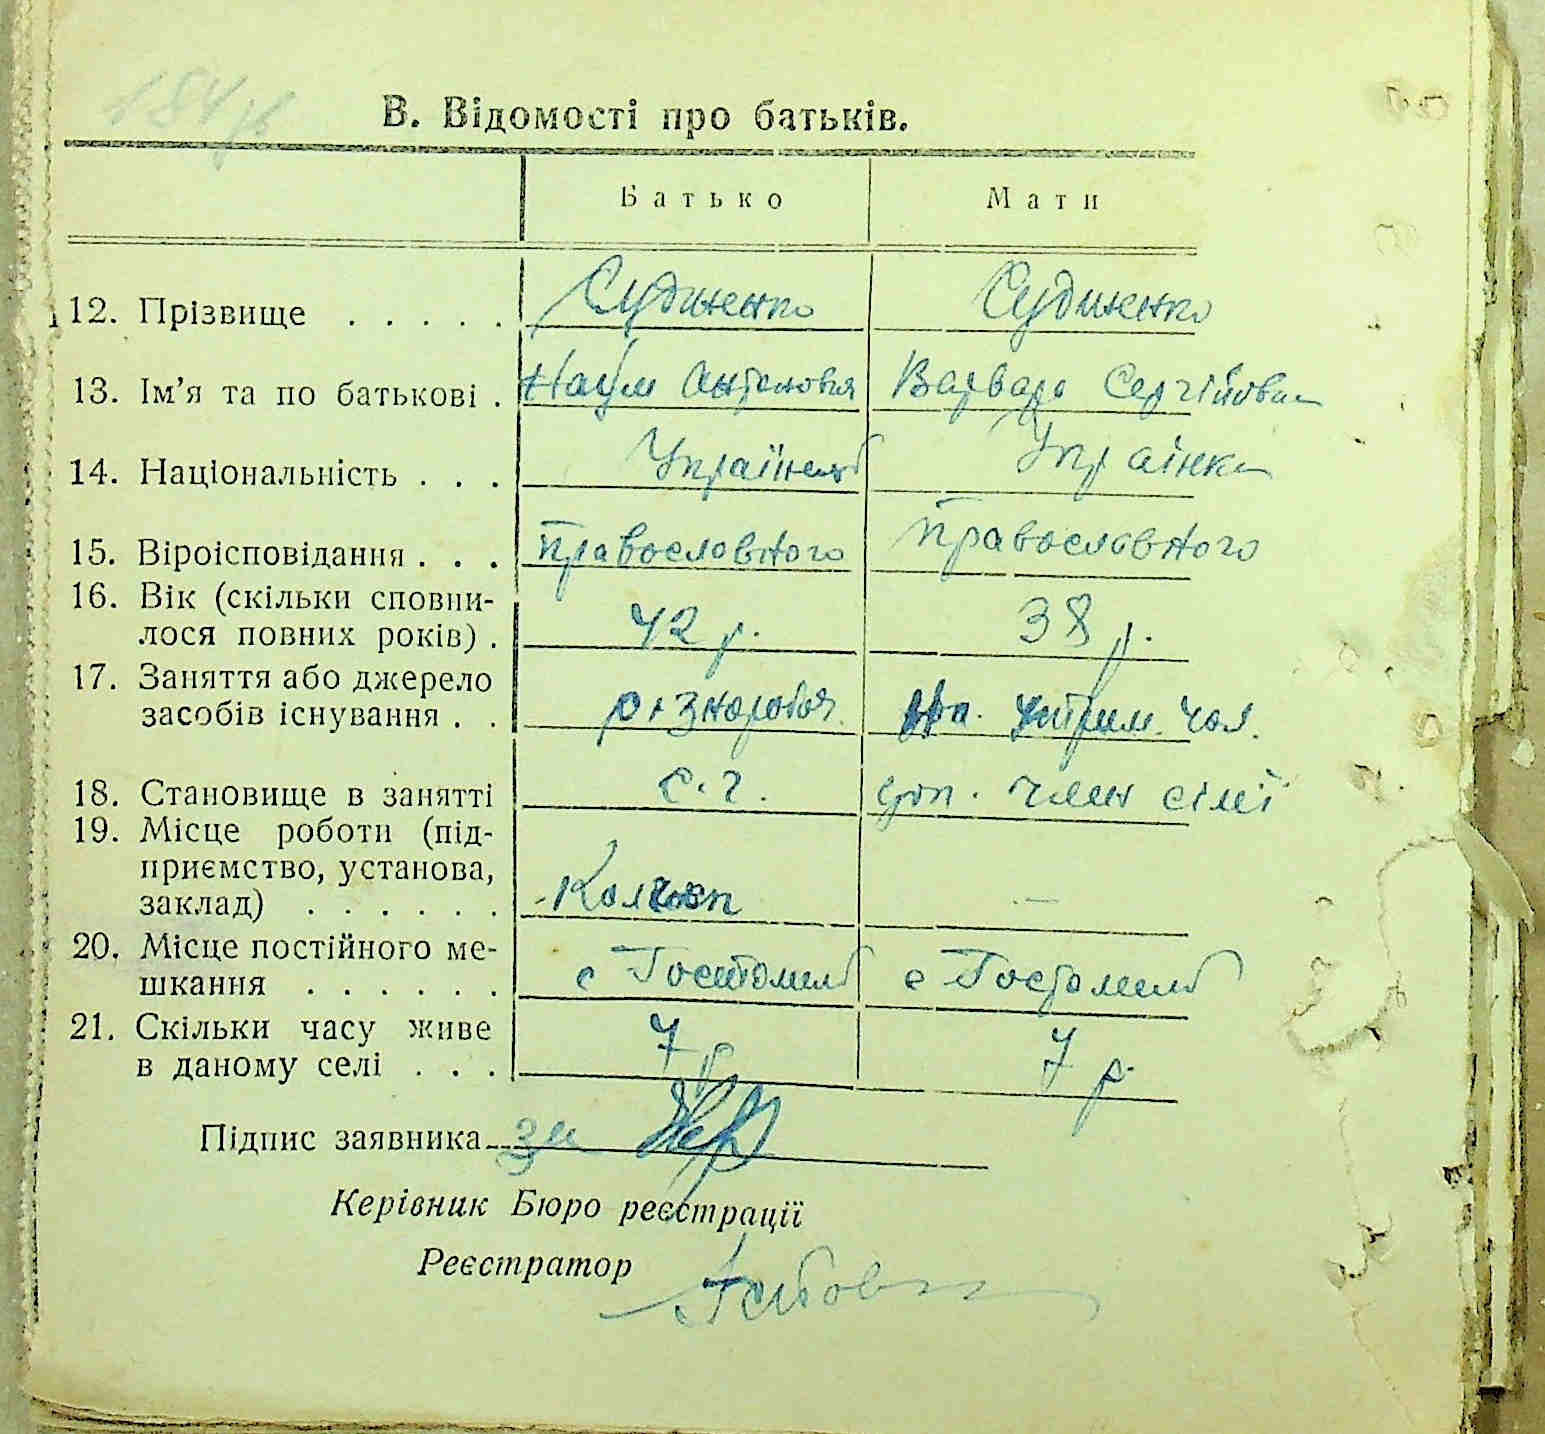 184
В. Відомості про батьків.
Батько Мати
12. Прізвище . . . . . Судиненко Судиненко
13. Ім'я та по батькові . Наум Антонович Варвара Сергіївна
14. Національність . . . Українець Українка
15. Віроісповідання . . . Православного Православного
16. Вік (скільки сповни-
лося повних років) . 42 р. 38 р.
17. Заняття або джерело
засобів існування . . різнороб утрим. чол.
18. Становище в занятті с.г. доп. член сімї
19. Місце роботи (під-
приємство, установа,
заклад) . . . . . . Колхоз —
20. Місце постійного ме-
шкання . . . . . . с Гостомиль с Гостомиль
21. Скільки часу живе
в даному селі . . . 7 р 7 р.
Підпис заявника за
Керівник Бюро реєстрації
Реєстратор